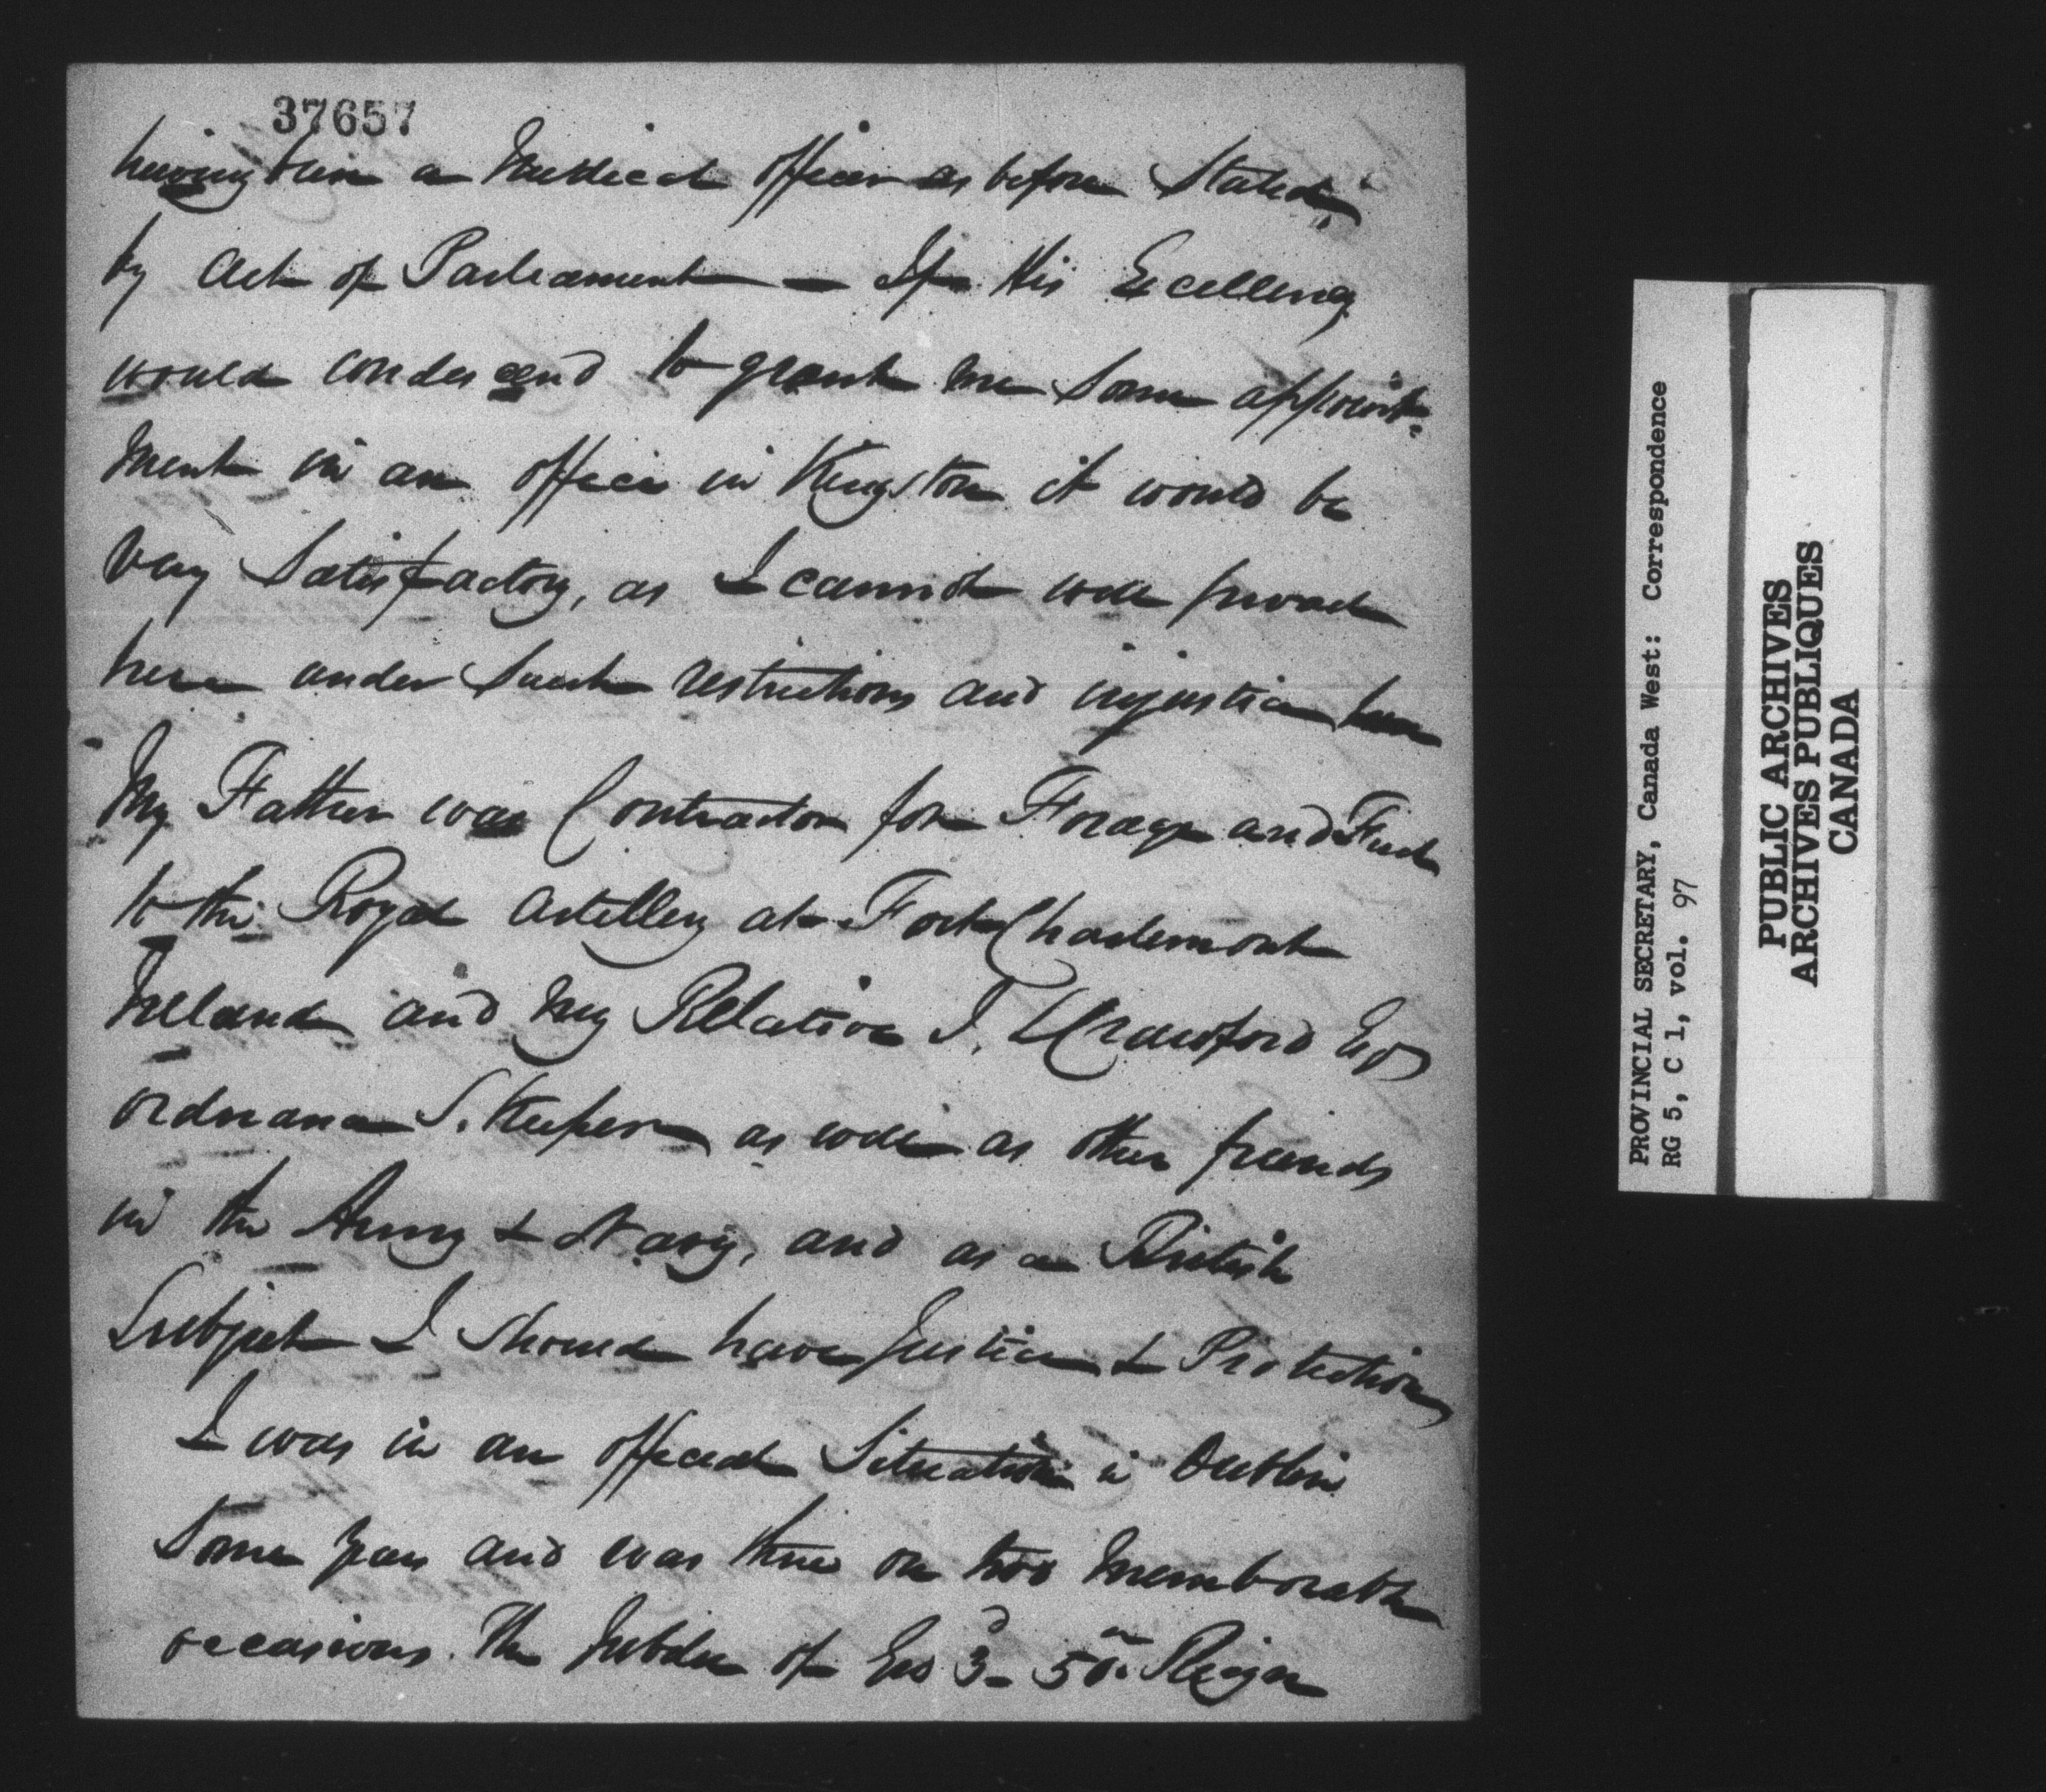 37657
having been a Medical officer as before Stated
by Act of Parliament — If His Excellency
would condescend to grant me some appoint=
ment in an office in Kingston it would be
very Satisfactory, as I cannot well
here under Such restrictions and injustice here
My Father was Contractor for Forage and Fuel
to the Royal Artillery at Fort Charlemont
Ireland and my Relative J. Crawford Esq
ordnance S. Keeper as well as other friends
in the Army & Navy, and as a British
Subject I should have Justice & Protection
I was in an official Situation in Dublin
Some years and was there on two memborable
occasions. The Jubilee of Geo 3d 50th Reign
PROVINCIAL SECRETARY, Canada West: Correspondence
RG 5, C 1, vol. 97
PUBLIC ARCHIVES
ARCHIVES PUBLIQUES
CANADA